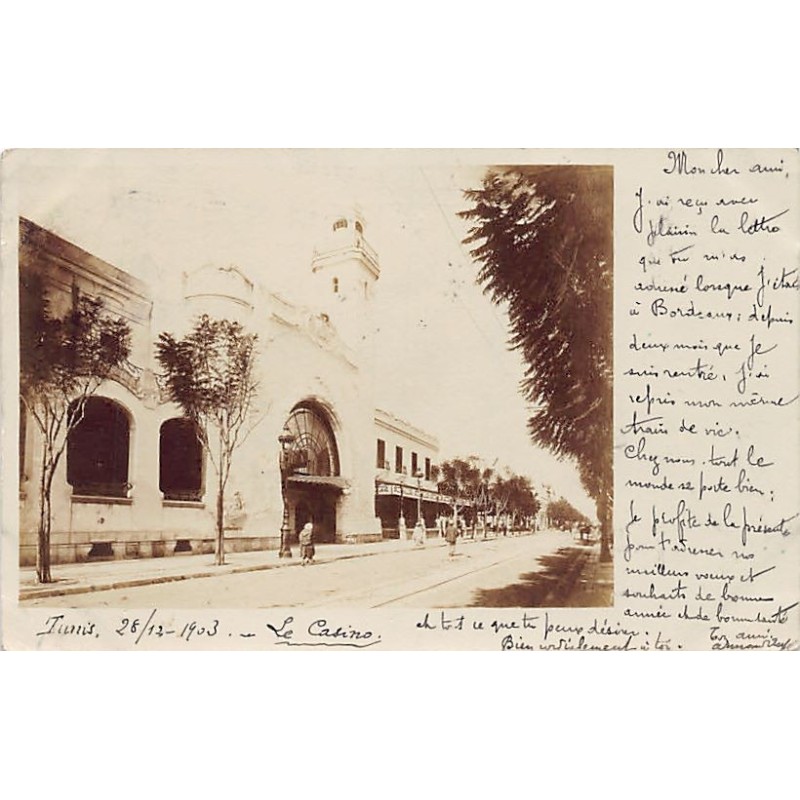 Mon cher ami,
J'ai reçu avec
plaisir la lettre
que tu m'as
adressé lorsque j'étais
à Bordeaux; depuis
deux mois que Je
suis rentré, J'ai
repris mon même
train de vie.
Chez nous tout le
monde se porte bien;
Je profite de la présente
pour t'adresser nos
meilleurs voeux et
souhaits de bonne
année et de bonne santé
et tout ce que tu peux désirer.
Bien cordialement à toi.
Ton ami
Tunis, 28/12-1903. - Le Casino.